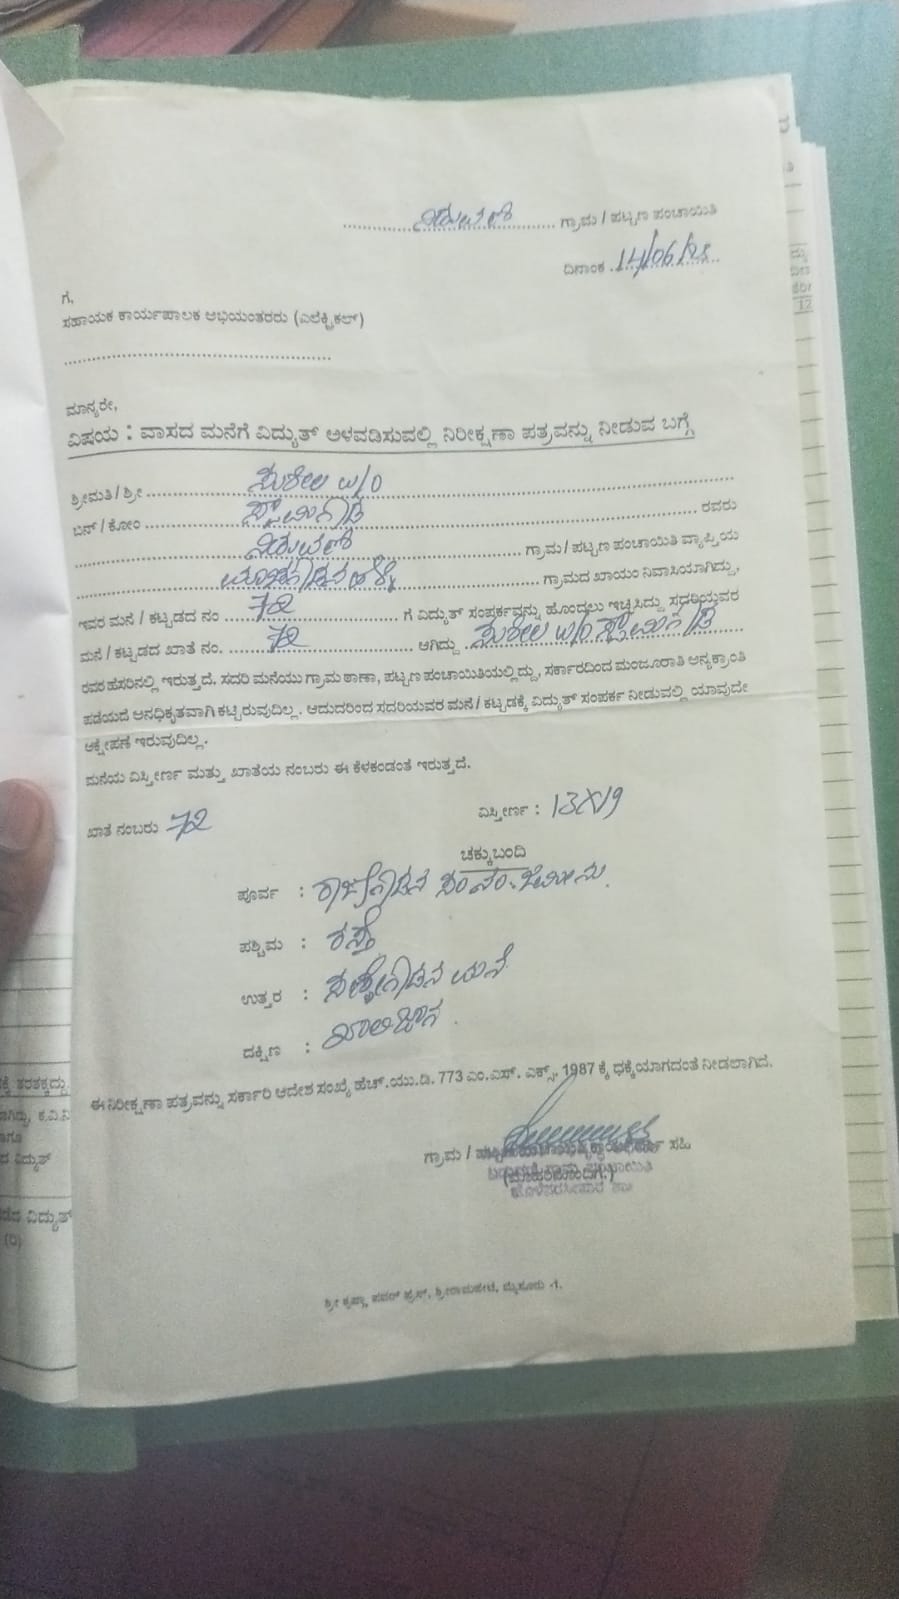 ಗ್ರಾಮ / ಪಟ್ಟಣ ಪಂಚಾಯಿತಿ
ದಿನಾಂಕ 14/06/25
ಗೆ,
ಸಹಾಯಕ ಕಾರ್ಯಪಾಲಕ ಅಭಿಯಂತರರು (ಎಲೆಕ್ಟ್ರಿಕಲ್)
ಮಾನ್ಯರೇ,
ವಿಷಯ : ವಾಸದ ಮನೆಗೆ ವಿದ್ಯುತ್ ಅಳವಡಿಸುವಲ್ಲಿ ನಿರೀಕ್ಷಣಾ ಪತ್ರವನ್ನು ನೀಡುವ ಬಗ್ಗೆ
ಶ್ರೀಮತಿ / ಶ್ರೀ ಸುಶೀಲ w/o
ಬಿನ್ / ಕೋಂ ಸ್ವಾಮಿಗೌಡ ರವರು
ಗ್ರಾಮ / ಪಟ್ಟಣ ಪಂಚಾಯಿತಿ ವ್ಯಾಪ್ತಿಯ
ಗ್ರಾಮದ ಖಾಯಂ ನಿವಾಸಿಯಾಗಿದ್ದು,
ಇವರ ಮನೆ / ಕಟ್ಟಡದ ನಂ 72 ಗೆ ವಿದ್ಯುತ್ ಸಂಪರ್ಕವನ್ನು ಹೊಂದಲು ಇಚ್ಛಿಸಿದ್ದು ಸದರಿಯವರ
ಮನೆ / ಕಟ್ಟಡದ ಖಾತೆ ನಂ. 72 ಆಗಿದ್ದು ಸುಶೀಲ w/o ಸ್ವಾಮಿಗೌಡ
ರವರ ಹೆಸರಿನಲ್ಲಿ ಇರುತ್ತದೆ. ಸದರಿ ಮನೆಯು ಗ್ರಾಮ ಠಾಣಾ, ಪಟ್ಟಣ ಪಂಚಾಯಿತಿಯಲ್ಲಿದ್ದು, ಸರ್ಕಾರದಿಂದ ಮಂಜೂರಾತಿ ಅನ್ಯಕ್ರಾಂತಿ
ಪಡೆಯದೆ ಅನಧಿಕೃತವಾಗಿ ಕಟ್ಟಿರುವುದಿಲ್ಲ. ಆದುದರಿಂದ ಸದರಿಯವರ ಮನೆ / ಕಟ್ಟಡಕ್ಕೆ ವಿದ್ಯುತ್ ಸಂಪರ್ಕ ನೀಡುವಲ್ಲಿ ಯಾವುದೇ
ಆಕ್ಷೇಪಣೆ ಇರುವುದಿಲ್ಲ.
ಮನೆಯ ವಿಸ್ತೀರ್ಣ ಮತ್ತು ಖಾತೆಯ ನಂಬರು ಈ ಕೆಳಕಂಡಂತೆ ಇರುತ್ತದೆ.
ಖಾತೆ ನಂಬರು 72 ವಿಸ್ತೀರ್ಣ : 13X19
ಚಕ್ಕುಬಂದಿ
ಪೂರ್ವ : ರಾಜೇಗೌಡನ ಜಮೀನು.
ಪಶ್ಚಿಮ : ರಸ್ತೆ
ಉತ್ತರ : ಮನೆ
ದಕ್ಷಿಣ : ಖಾಲಿ ಜಾಗ.
ಈ ನಿರೀಕ್ಷಣಾ ಪತ್ರವನ್ನು ಸರ್ಕಾರಿ ಆದೇಶ ಸಂಖ್ಯೆ ಹೆಚ್.ಯು.ಡಿ. 773 ಎಂ.ಎಸ್. ಎಕ್ಸ್. 1987 ಕ್ಕೆ ಧಕ್ಕೆಯಾಗದಂತೆ ನೀಡಲಾಗಿದೆ.
ಗ್ರಾಮ / ಸಹಿ
ಶ್ರೀ ಕೃಷ್ಣಾ ಪವರ್ ಪ್ರೆಸ್, ಶ್ರೀರಾಮಪೇಟೆ, ಮೈಸೂರು -1.